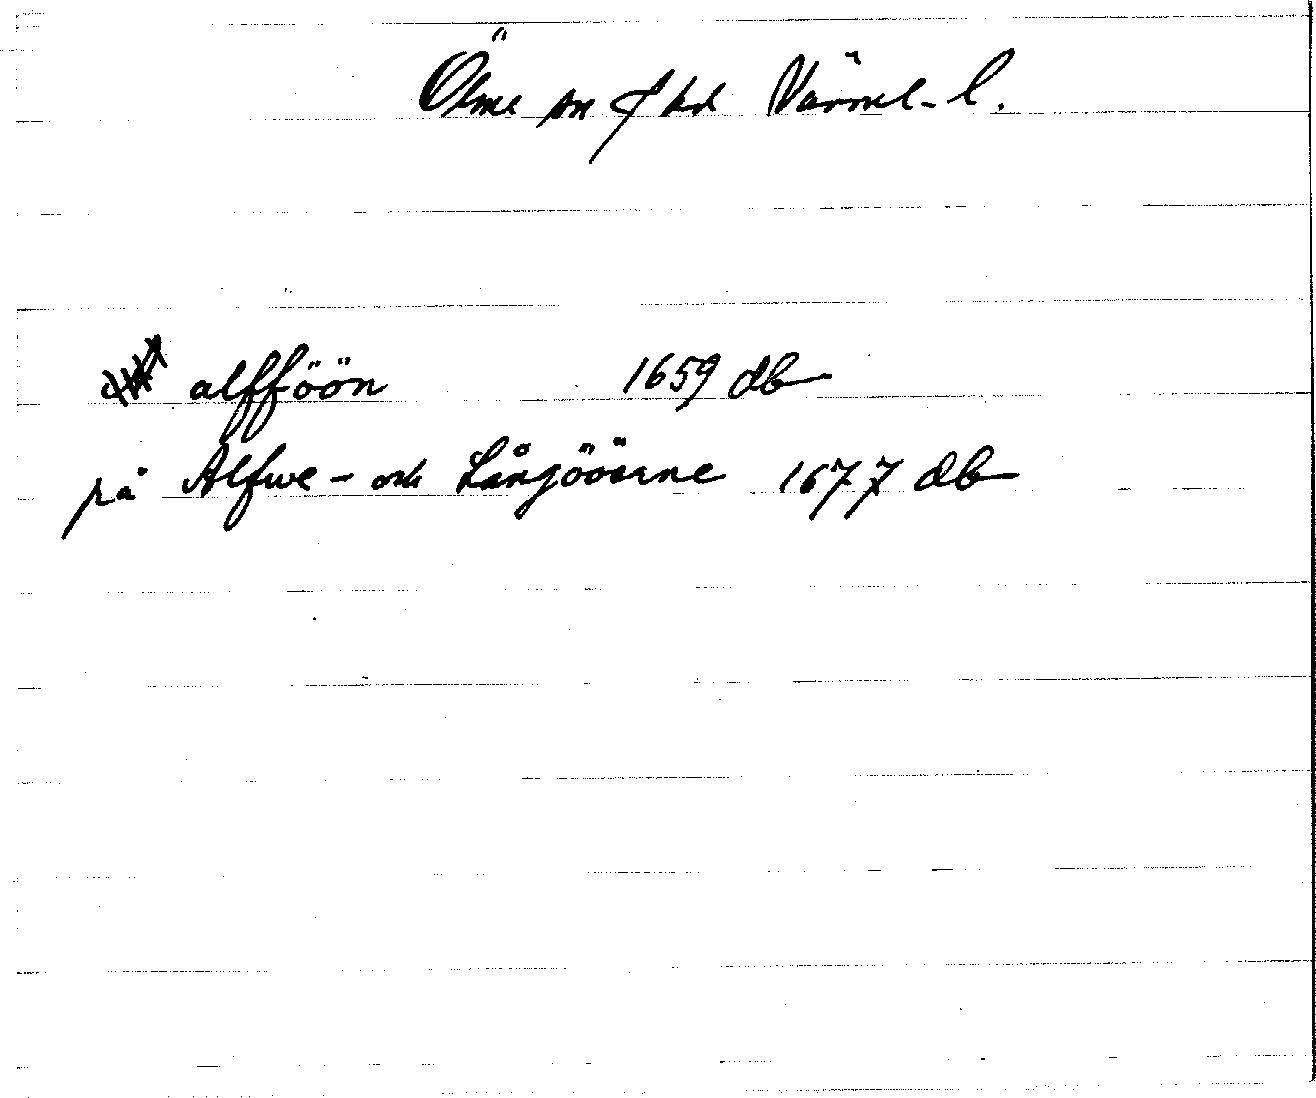 Ölme sn o hd Värml. l.
alfföön 1659 db
på Alfwe- och Långööerne 1677 db